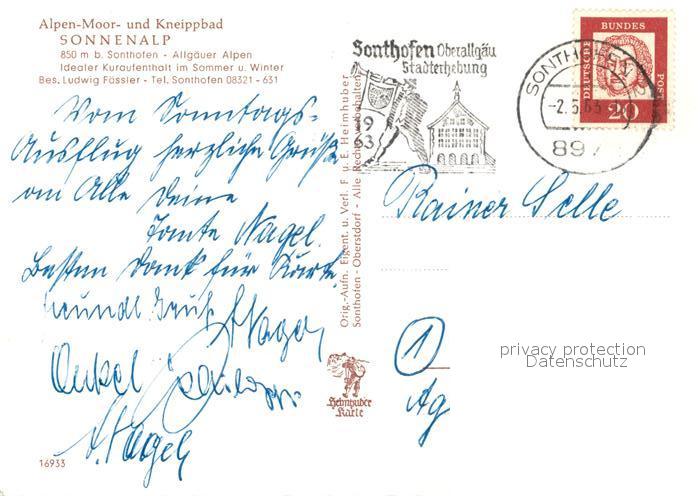 Alpen-Moor- und Kneippbad
SONNENALP
850 m b. Sonthofen - Allgäuer Alpen
Idealer Kuraufenthalt im Sommer u. Winter
Bes. Ludwig Fässler - Tel. Sonthofen 08321 - 631
Vom Sonntags-
Ausflug herzliche Grüße
an Alle Deine
Tante Nagel.
Besten Dank für Karte
Onkel
Nagel
16933
Orig.-Aufn. Eigent. u. Verl. F. u. E. Heimhuber
Sonthofen - Oberstdorf - Alle Rechte vorbehalten
Heimhuber
Karte
Sonthofen Oberallgäu
Stadterhebung
19
63
SONTHOFEN
-2.5.63
897
DEUTSCHE
BUNDES
POST
20
Rainer Selle
1
Ag
privacy protection
Datenschutz